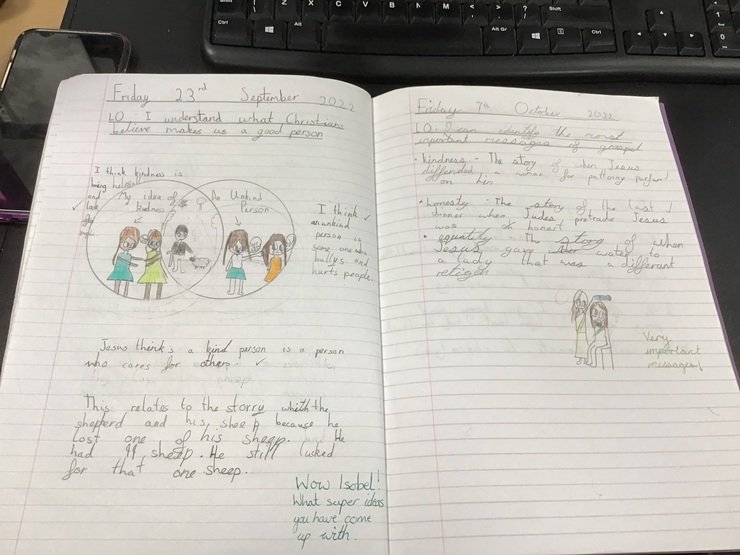 Friday 23rd September 2022
LO I understand what Christians
believe makes us a good person
I think kindness is
being helpful
and
look
after
people
My idea of
kindness
An Unkind
Person
I think
an unkind
person is
some one who
bullys and
hurts people.
Jesus think's a kind person is a person
who cares for others.
This relates to the storry whith the
sheperd and his sheep because he
lost one of his sheep. He
had 99 sheep. He still lucked
for that one sheep.
Wow Isobel!
What super ideas
you have come
up with.
Friday 7th October 2022
LO: I can identify the moral
important messages of gospel
• kindness - The story of when Jesus
diffended a woman for puttiny parfum
on him
• honesty - The story of the last
dinner when Judes pretrade Jesus
was on honest
• equality - The story of when
Jesus gave water to
a lady that was a differant
religion
Very
important
messages!